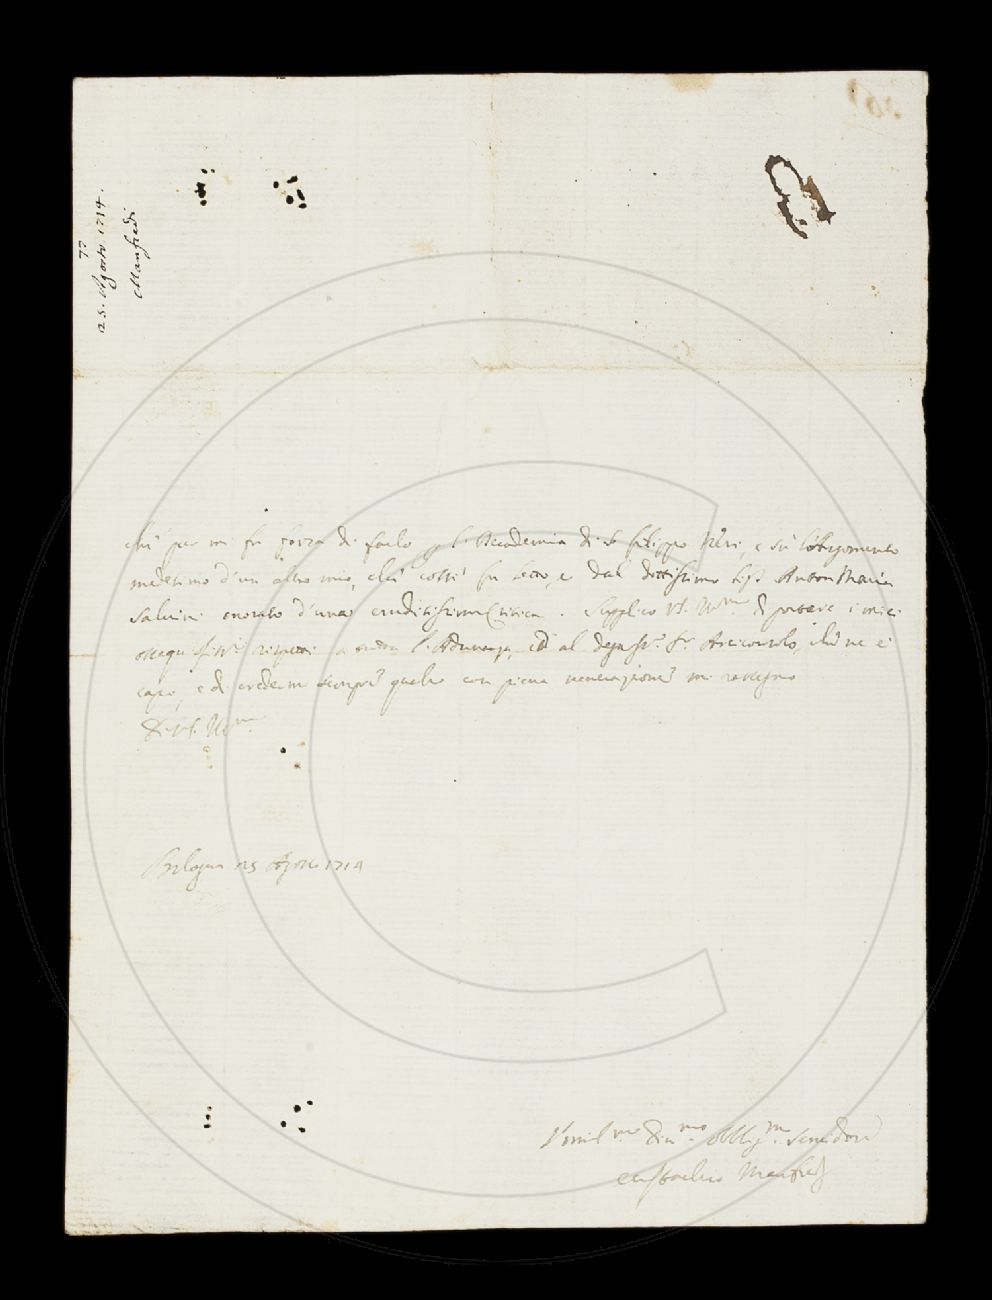 77
25. Agosto 1714.
Manfredi
che per mi fu forza di farlo p l'Accademia di S. Filippo Neri, e su l'argomento
medesimo d'un altro mio, che costì fu letto, e dal dottissimo Sigr. Anton Maria
Salvini onorato d'una eruditissima Critica. Supplico VS. Ill.ma di portare i miei
ossequiosi.mi rispetti a tutta l'Adunanza, ed al degniss.o Sr. Arciconsolo, che ne è
capo, e di credermi sempre quale con piena venerazione mi rassegno
Di VS. Ill.ma
Bologna 25 Agosto 1714
Umiliss.mo Div.mo Obblig.mo Servidore
Eustachio Manfredi